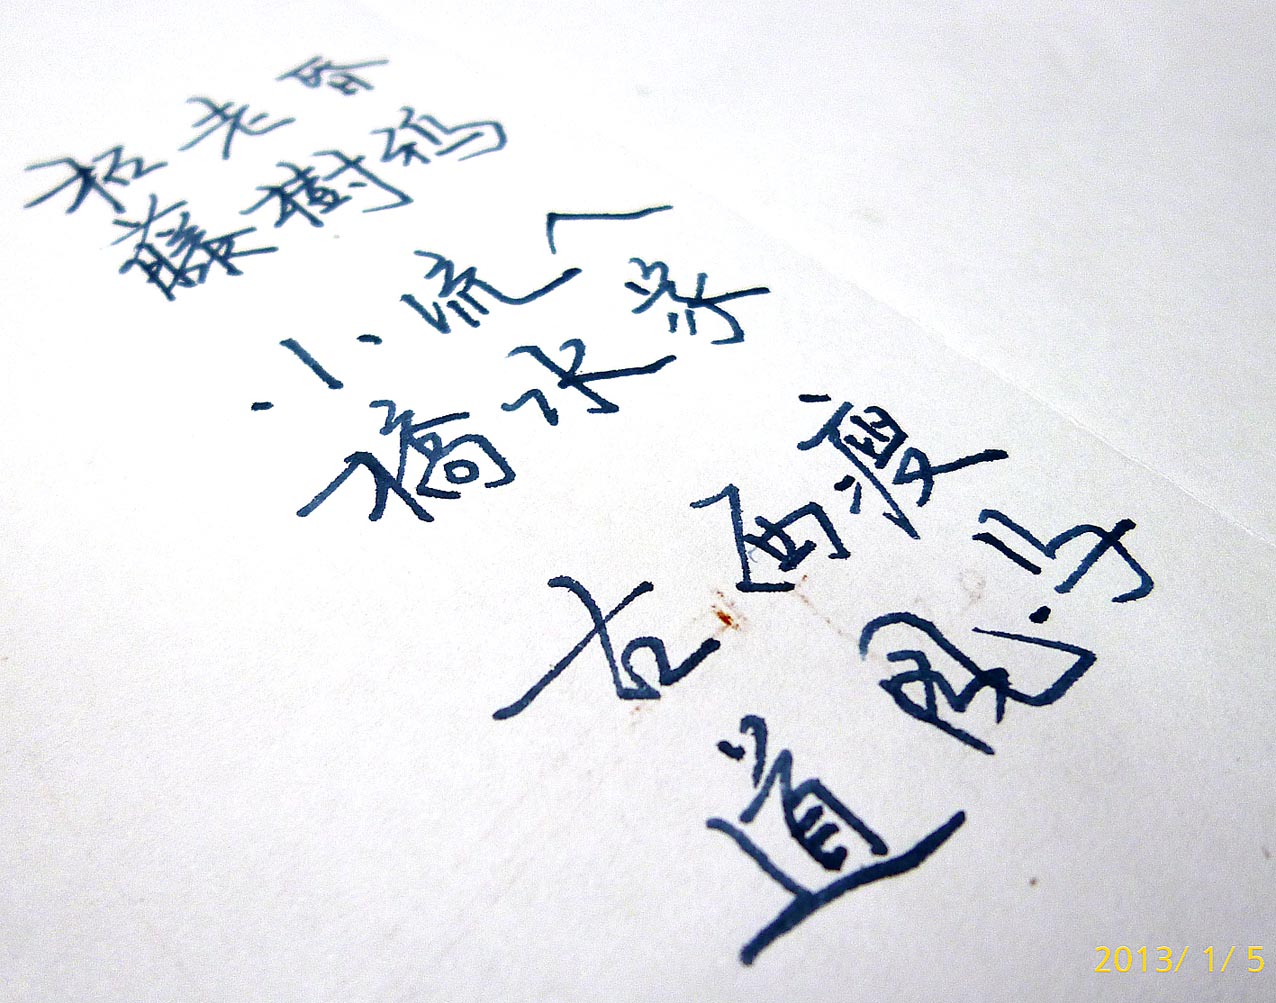 枯藤
老樹
昏鴉
小橋
流水
人家
古道
西風
瘦馬